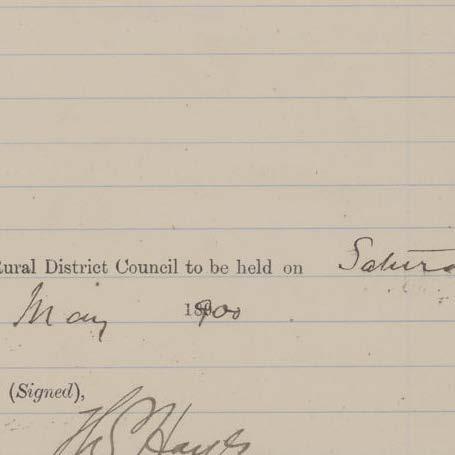 Rural District Council to be held on Satur
May 1900
(Signed),
Thos Hayes